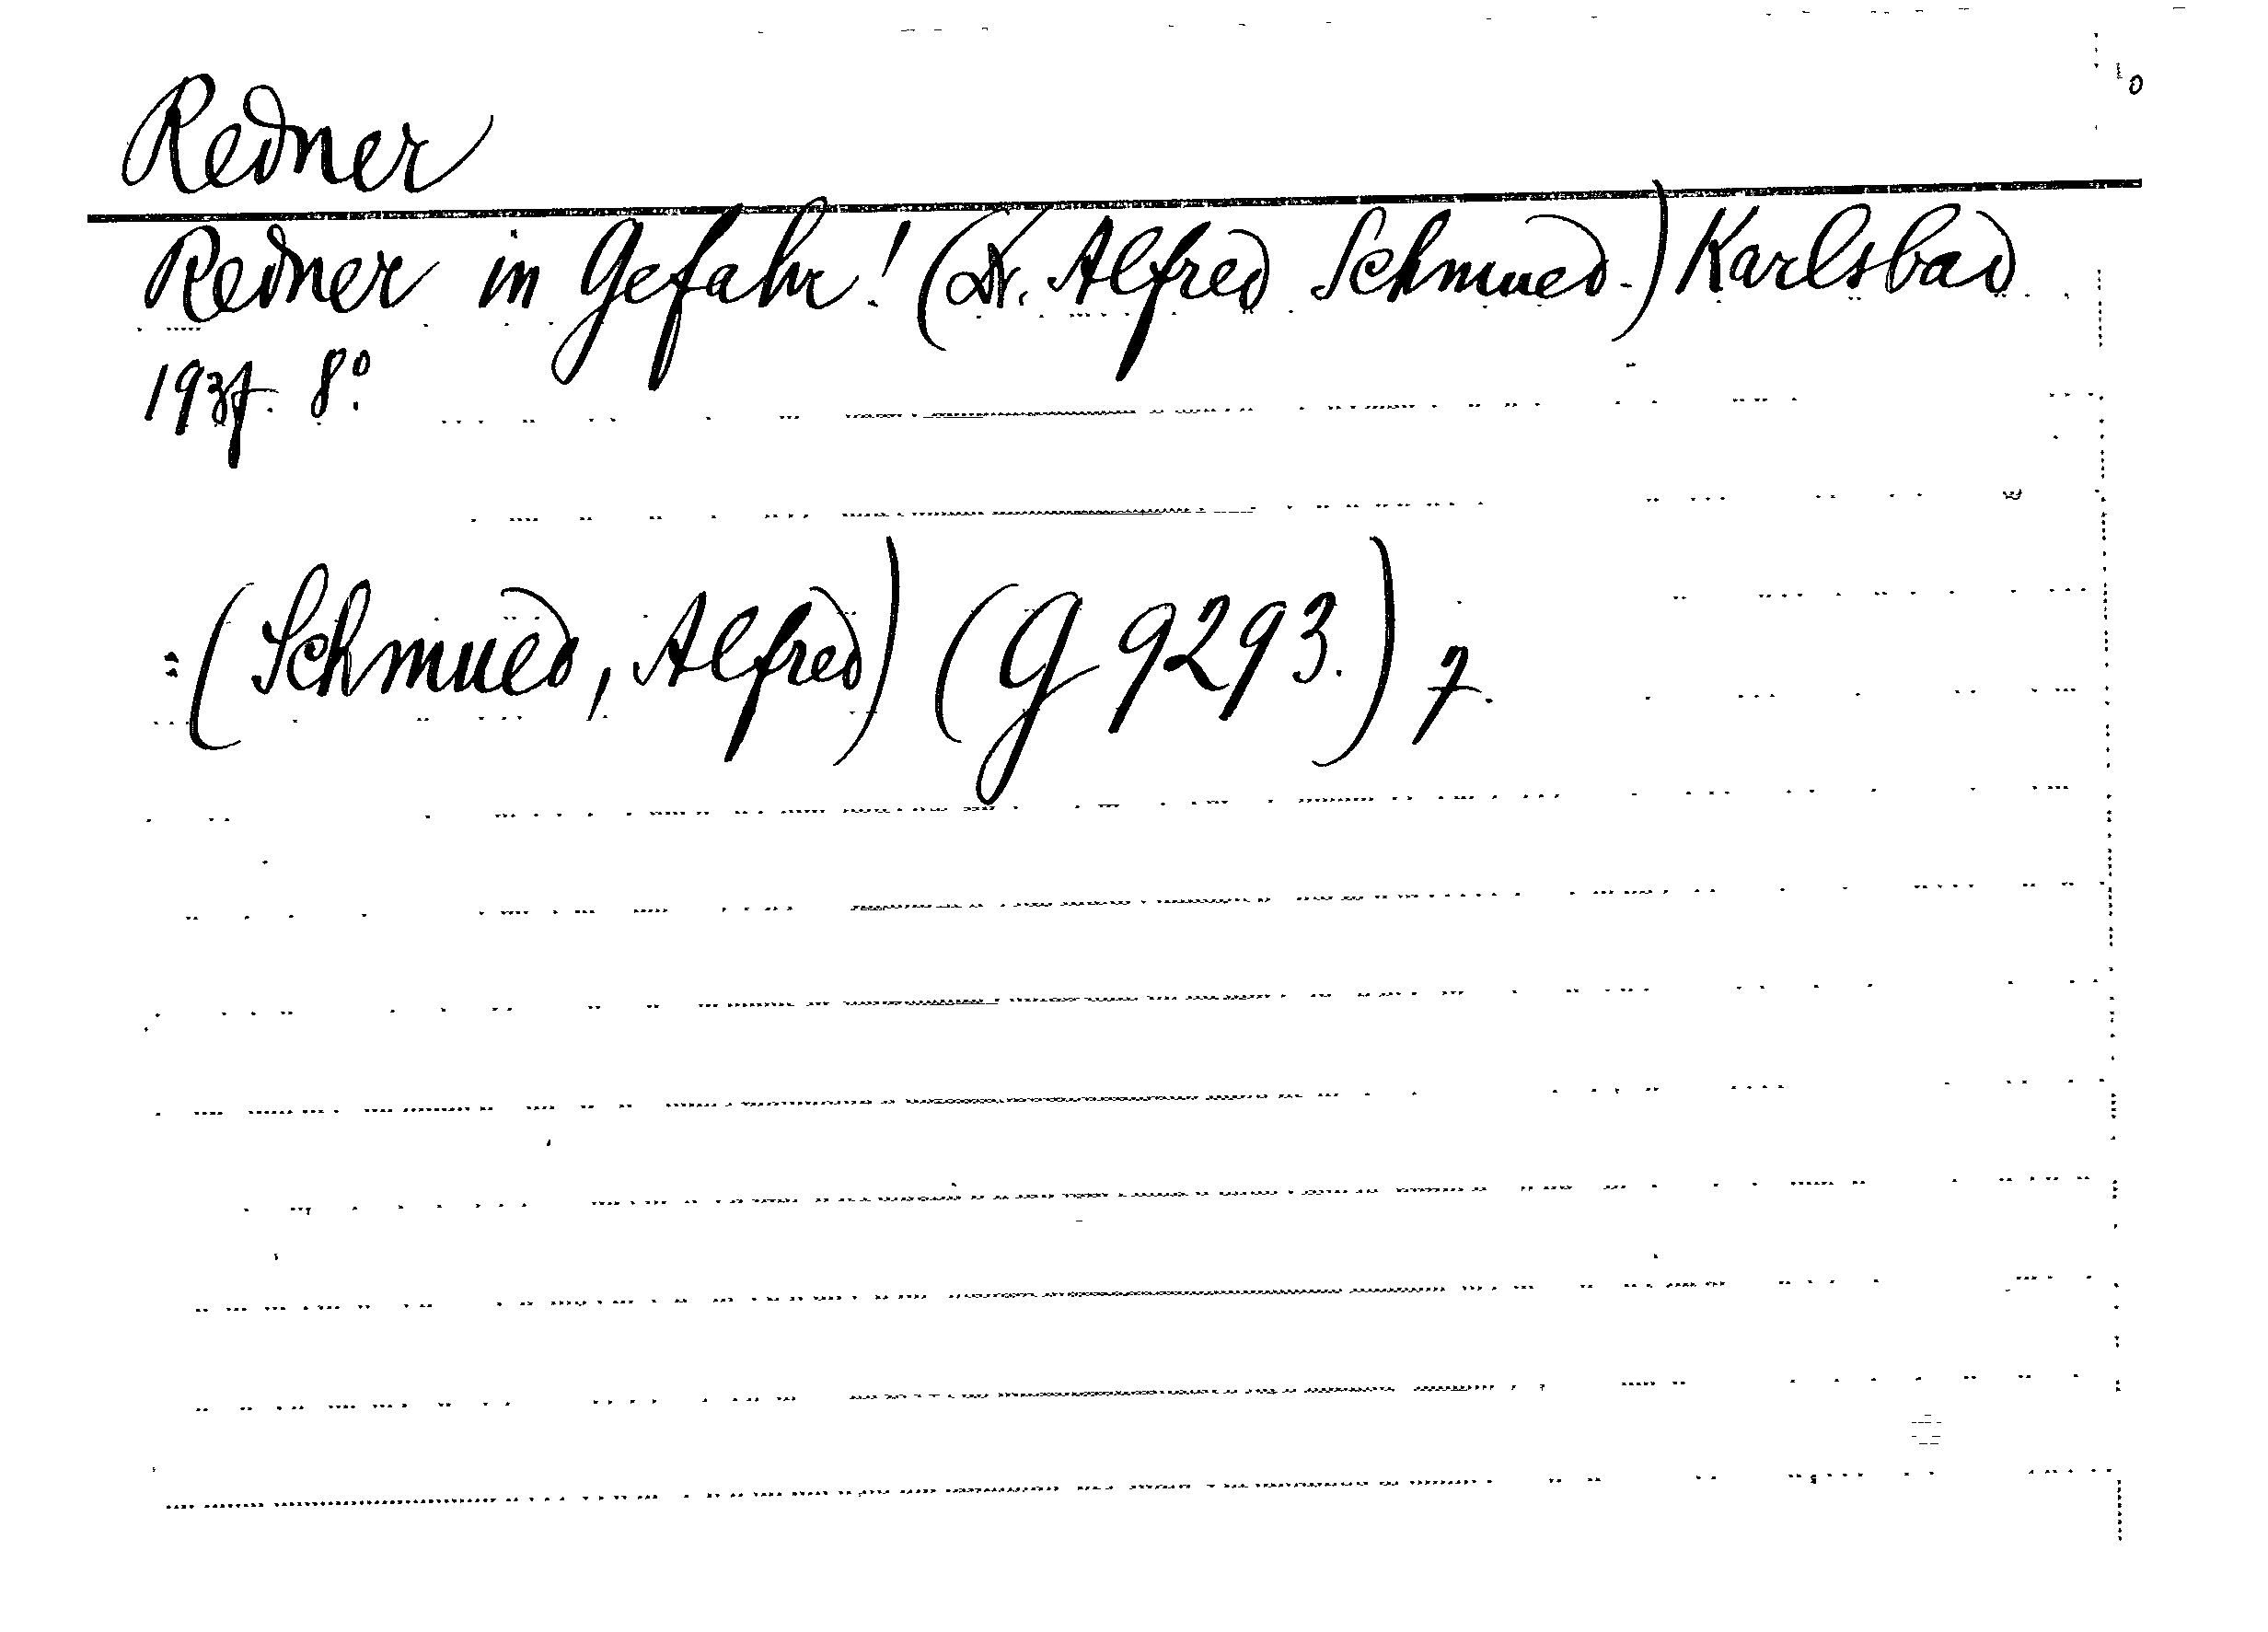 Redner
Redner in Gefahr! (Dr. Alfred Schmued.) Karlsbad
1937. 8°.
=(Schmued, Alfred) (G 9293.) 7.